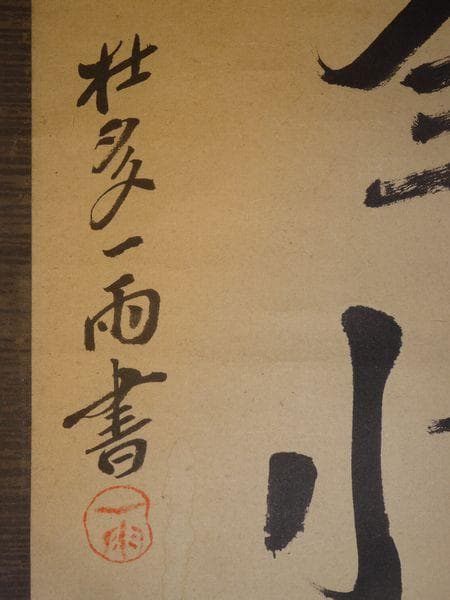 杜多一雨書
一雨